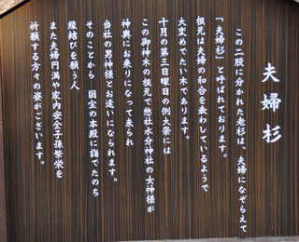 夫婦杉
この二股に分かれた老杉は、夫婦になぞらえて
「夫婦杉」と呼ばれております。
根元は夫婦の和合を表わしているようで
大変めでたい木であります。
十月の第三日曜日の例大祭には
この御神木の根元で惣社水分神社の女神様が
神輿にお乗りになって来られ
当社の男神様とお逢いになられます。
そのことから 弱宮の本殿に詣でたのち
縁結びを願う人
また夫婦円満や家内安全子孫繁栄を
祈願する方々の杉でございます。